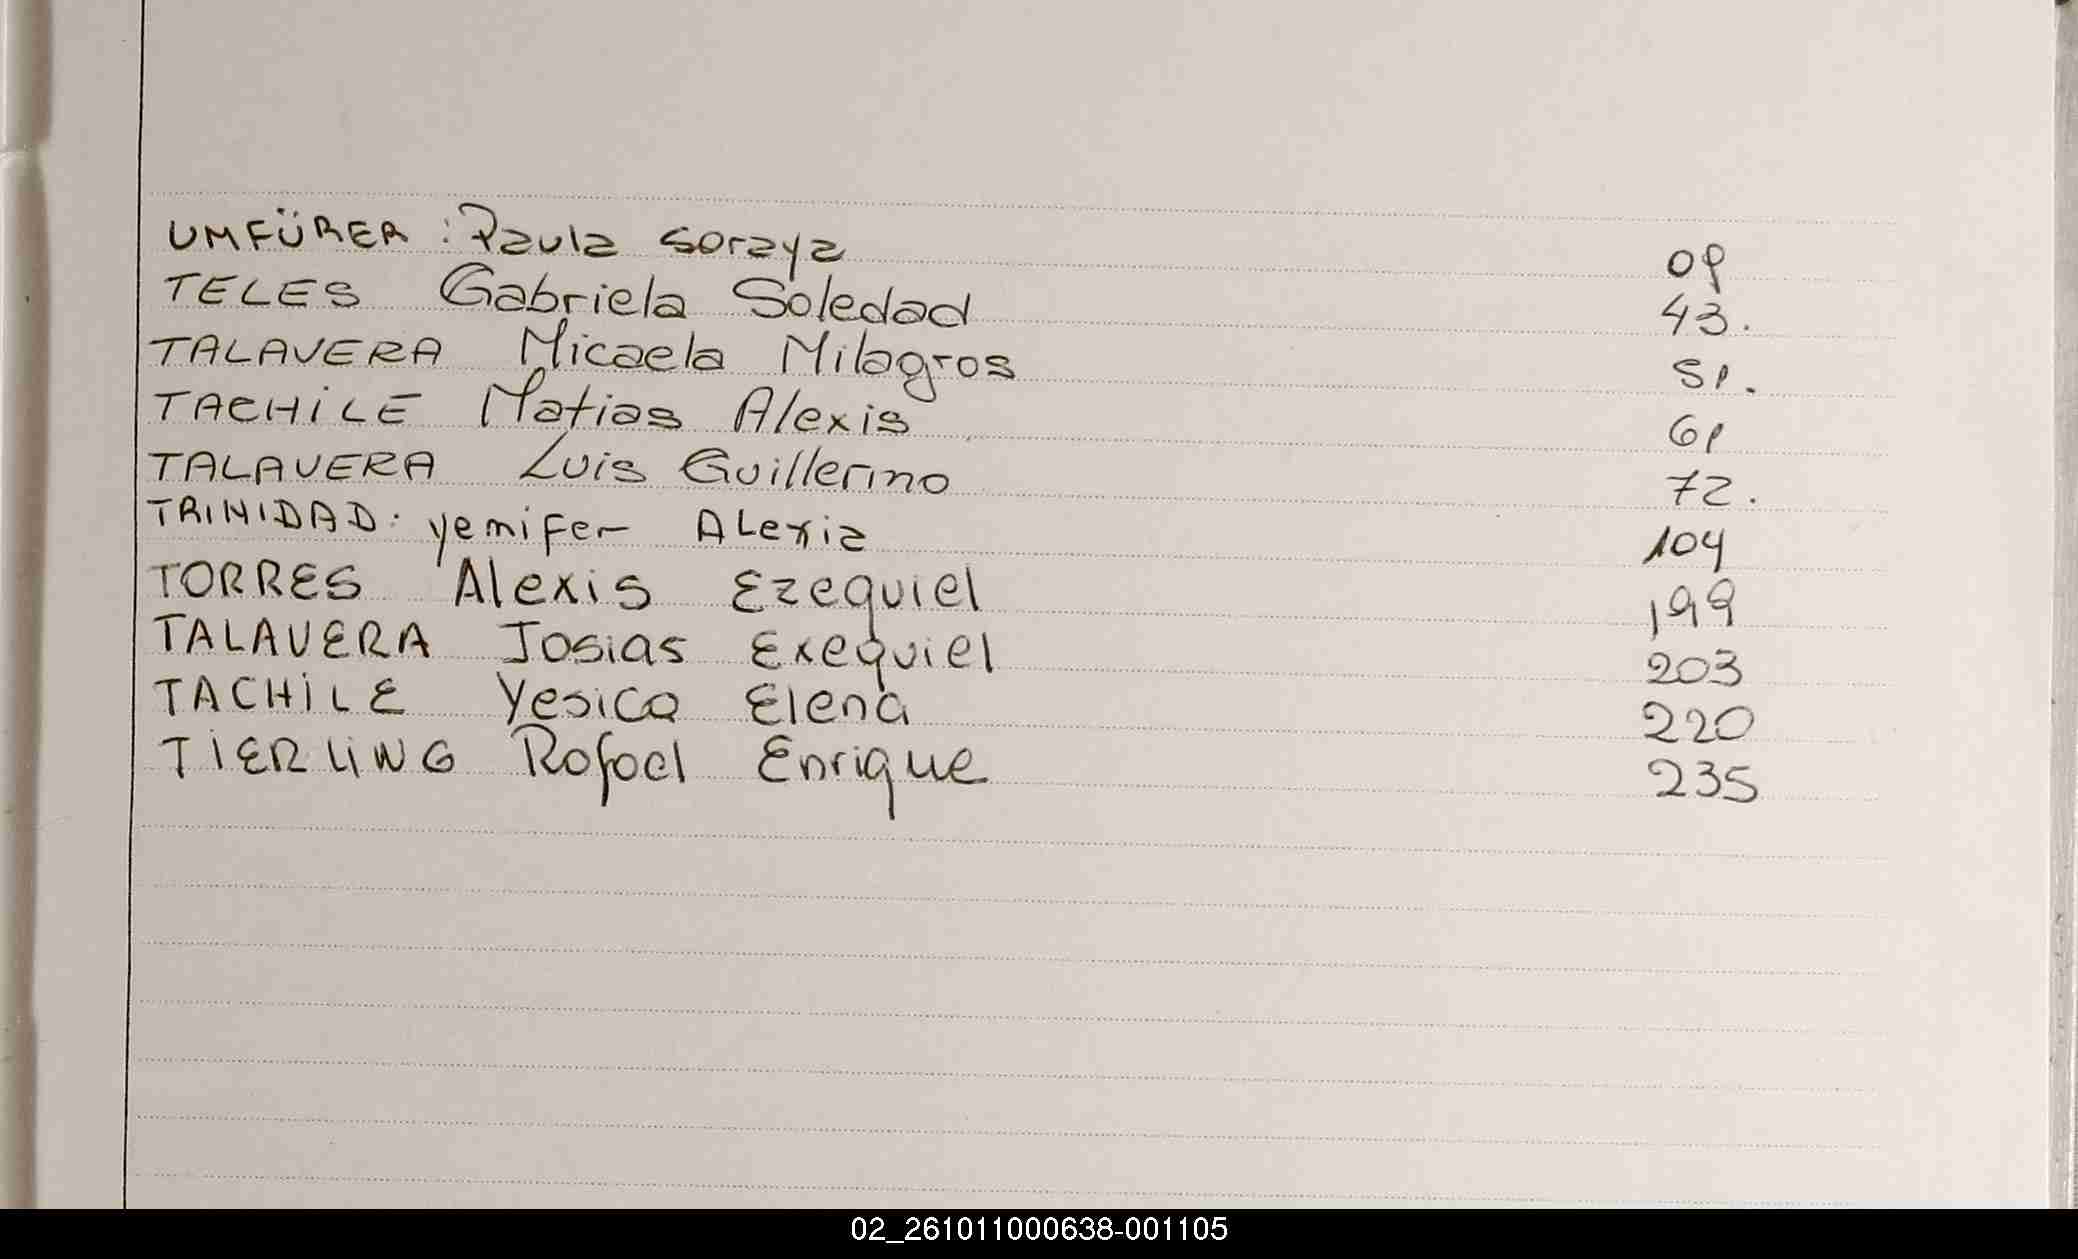 UMFÜRER : Paula Soraya 09
TELES Gabriela Soledad 43.
TALAVERA Micaela Milagros 51.
TACHiLE Matias Alexis 61
TALAVERA Luis Guillermo 72.
TRINIDAD: yemifer ALexia 104
TORRES Alexis Ezequiel 199
TALAVERA Josias Exequiel 203
TACHiLE Yesica Elena 220
TiERLiNG Rafael Enrique 235
02_261011000638-001105